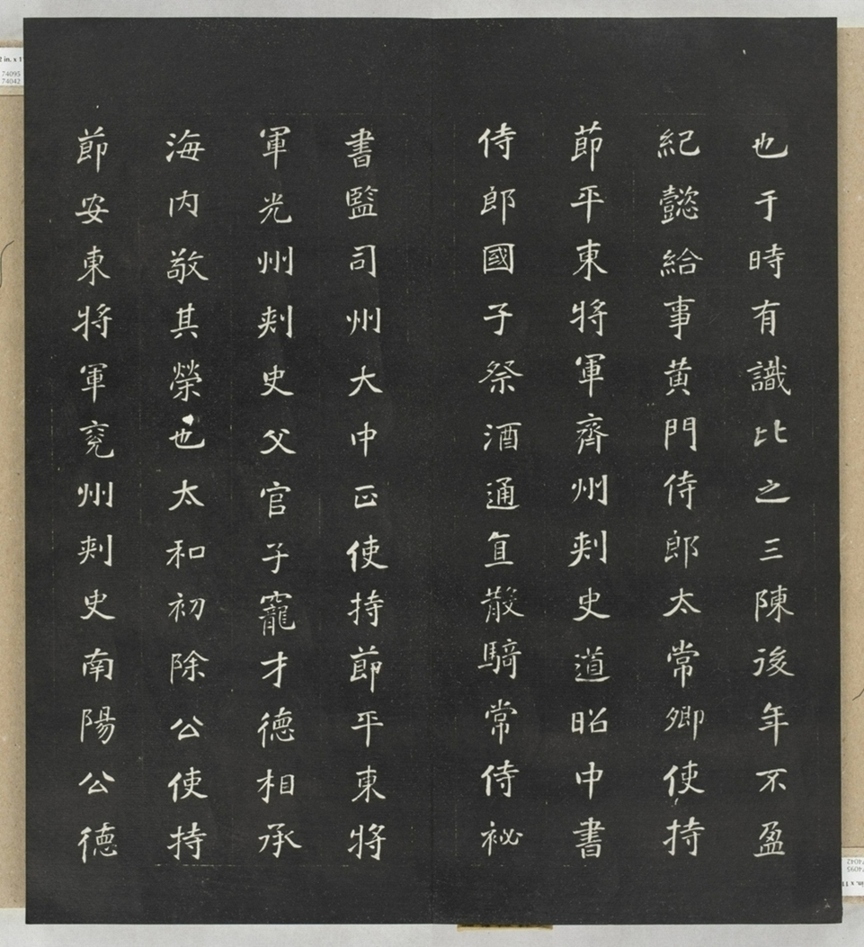 也于時有識比之三陳後年不盈
紀懿給事黄門侍郎太常卿使持
節平東將軍齊州刺史道昭中書
侍郎國子祭酒通直散騎常侍祕
書監司州大中正使持節平東將
軍光州刺史父官子寵才德相承
海内敬其榮也太和初除公使持
節安東將軍兖州刺史南陽公德
74095
74042